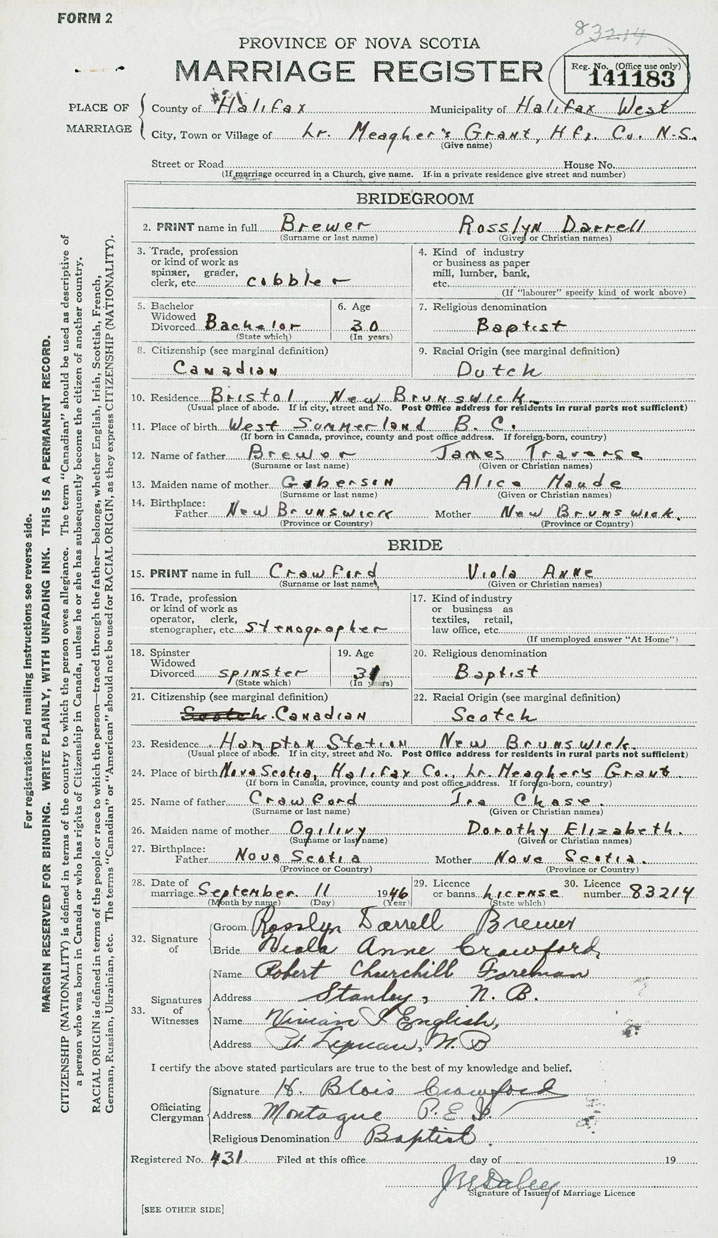 FORM 2
83214
PROVINCE OF NOVA SCOTIA
MARRIAGE REGISTER
Reg. No. (Office use only)
141183
PLACE OF MARRIAGE
County of Halifax Municipality of Halifax West
City, Town or Village of Lr. Meagher's Grant, Hfx. Co. N.S.
(Give name)
Street or Road House No.
(If marriage occurred in a Church, give name. If in a private residence give street and number)
BRIDEGROOM
2. PRINT name in full Brewer Rosslyn Darrell
(Surname or last name) (Given or Christian names)
3. Trade, profession or kind of work as spinner, grader, clerk, etc. cobbler
4. Kind of industry or business as paper mill, lumber, bank, etc.
(If "labourer" specify kind of work above)
5. Bachelor Widowed Divorced Bachelor
(State which)
6. Age 30
(In years)
7. Religious denomination
Baptist
8. Citizenship (see marginal definition)
Canadian
9. Racial Origin (see marginal definition)
Dutch
10. Residence Bristol, New Brunswick.
(Usual place of abode. If in city, street and No. Post Office address for residents in rural parts not sufficient)
11. Place of birth West Summerland B. C.
(If born in Canada, province, county and post office address. If foreign-born, country)
12. Name of father Brewer James Traverse
(Surname or last name) (Given or Christian names)
13. Maiden name of mother Gaberson Alice Maude
(Surname or last name) (Given or Christian names)
14. Birthplace: Father New Brunswick Mother New Brunswick.
(Province or Country) (Province or Country)
BRIDE
15. PRINT name in full Crawford Viola Anne
(Surname or last name) (Given or Christian names)
16. Trade, profession or kind of work as operator, clerk, stenographer, etc. Stenographer
17. Kind of industry or business as textiles, retail, law office, etc.
(If unemployed answer "At Home")
18. Spinster Widowed Divorced spinster
(State which)
19. Age 31
(In years)
20. Religious denomination
Baptist
21. Citizenship (see marginal definition)
Scotch. Canadian
22. Racial Origin (see marginal definition)
Scotch
23. Residence Hampton Station New Brunswick.
(Usual place of abode. If in city, street and No. Post Office address for residents in rural parts not sufficient)
24. Place of birth Nova Scotia, Halifax Co., Lr. Meagher's Grant
(If born in Canada, province, county and post office address. If foreign-born, country)
25. Name of father Crawford Ira Chase.
(Surname or last name) (Given or Christian names)
26. Maiden name of mother Ogilivy Dorothy Elizabeth.
(Surname or last name) (Given or Christian names)
27. Birthplace: Father Nova Scotia Mother Nova Scotia.
(Province or Country) (Province or Country)
28. Date of marriage September 11 1946
(Month by name) (Day) (Year)
29. Licence or banns License
(State which)
30. Licence number 83214
32. Signature of
Groom Rosslyn Darrell Brewer
Bride Viola Anne Crawford,
33. Signatures of Witnesses
Name Robert Churchill Foreman
Address Stanley, N. B.
Name Vivian English,
Address N. B
I certify the above stated particulars are true to the best of my knowledge and belief.
Officiating Clergyman
Signature H. Blois Crawford
Address Montague P.E.I.
Religious Denomination Baptist.
Registered No. 431 Filed at this office day of 19
Signature of Issuer of Marriage Licence
[SEE OTHER SIDE]
For registration and mailing instructions see reverse side.
MARGIN RESERVED FOR BINDING. WRITE PLAINLY, WITH UNFADING INK. THIS IS A PERMANENT RECORD.
CITIZENSHIP (NATIONALITY) is defined in terms of the country to which the person owes allegiance. The term "Canadian" should be used as descriptive of
a person who was born in Canada or who has rights of Citizenship in Canada, unless he or she has subsequently become the citizen of another country.
RACIAL ORIGIN is defined in terms of the people or race to which the person—traced through the father—belongs, whether English, Irish, Scottish, French,
German, Russian, Ukrainian, etc. The terms "Canadian" or "American" should not be used for RACIAL ORIGIN, as they express CITIZENSHIP (NATIONALITY).